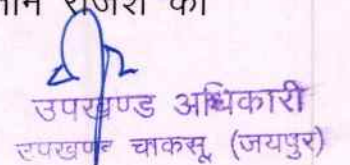 राजेश का
उपखण्ड अधिकारी
उपखण्ड चाकसू (जयपुर)